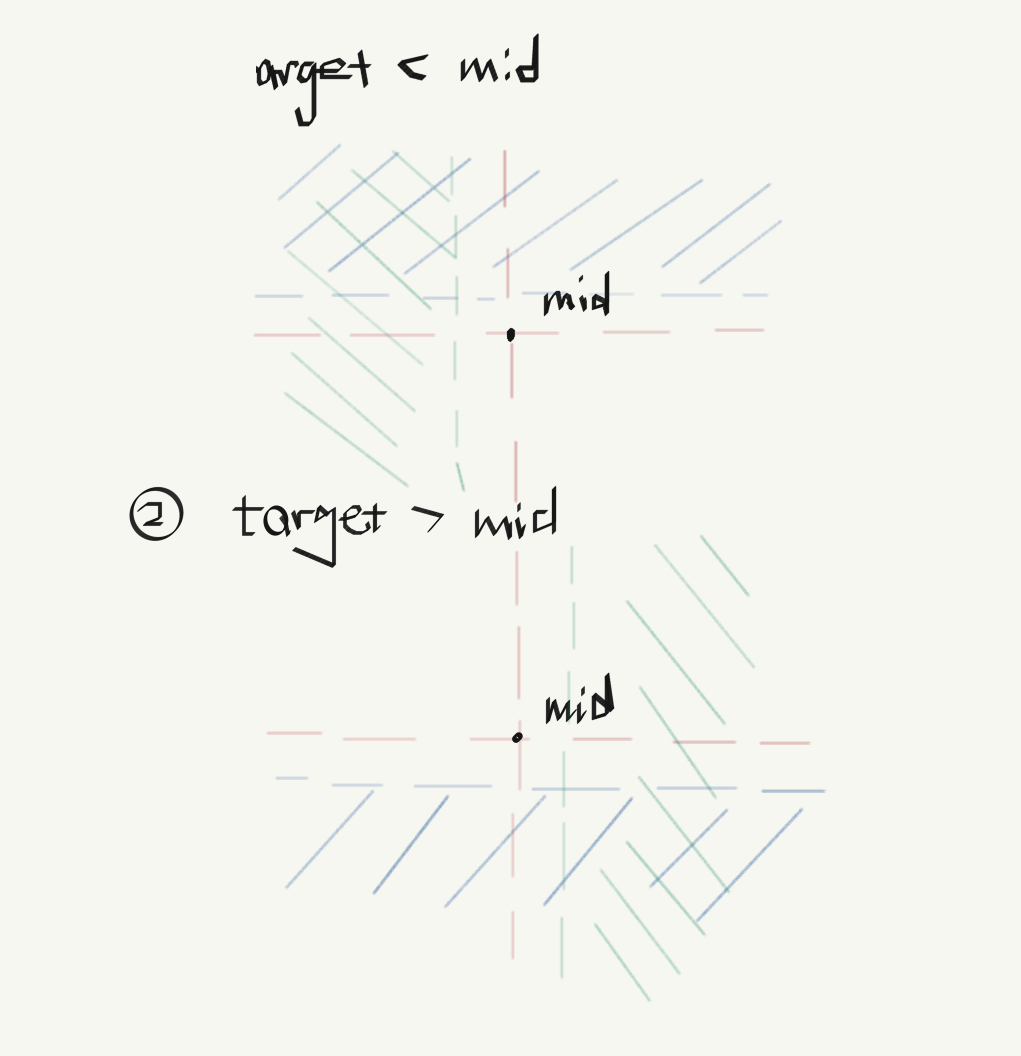 arget < mid
mid
② target > mid
mid